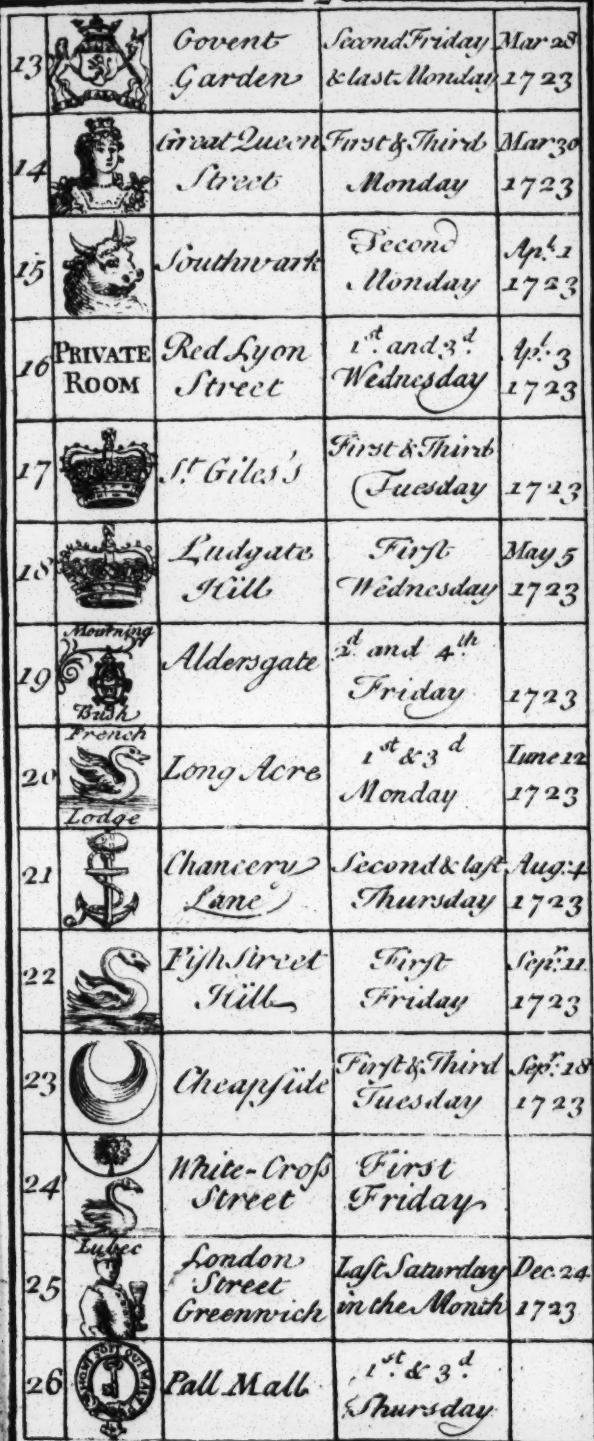 13 Covent Garden Second Friday & last Monday Mar 28 1723
14 Great Queen Street First & Third Monday Mar 30 1723
15 Southwark Second Monday Ap.l 1 1723
16 PRIVATE ROOM Red Lyon Street 1st. and 3d. Wednesday Ap.l 3 1723
17 St Giles's First & Third Tuesday 1723
18 Ludgate Hill First Wednesday May 5 1723
19 Mourning Bush Aldersgate 2d and 4th Friday 1723
20 French Lodge Long Acre 1st & 3d Monday Iune 12 1723
21 Chancery Lane Second & last Thursday Aug: 4 1723
22 Fish Street Hill First Friday Sepr. 11 1723
23 Cheapside First & Third Tuesday Sepr. 18 1723
24 White-Cross Street First Friday
25 Lubec London Street Greenwich Last Saturday in the Month Dec. 24 1723
26 HONI SOIT QUI MAL Pall Mall 1st. & 3d. Thursday